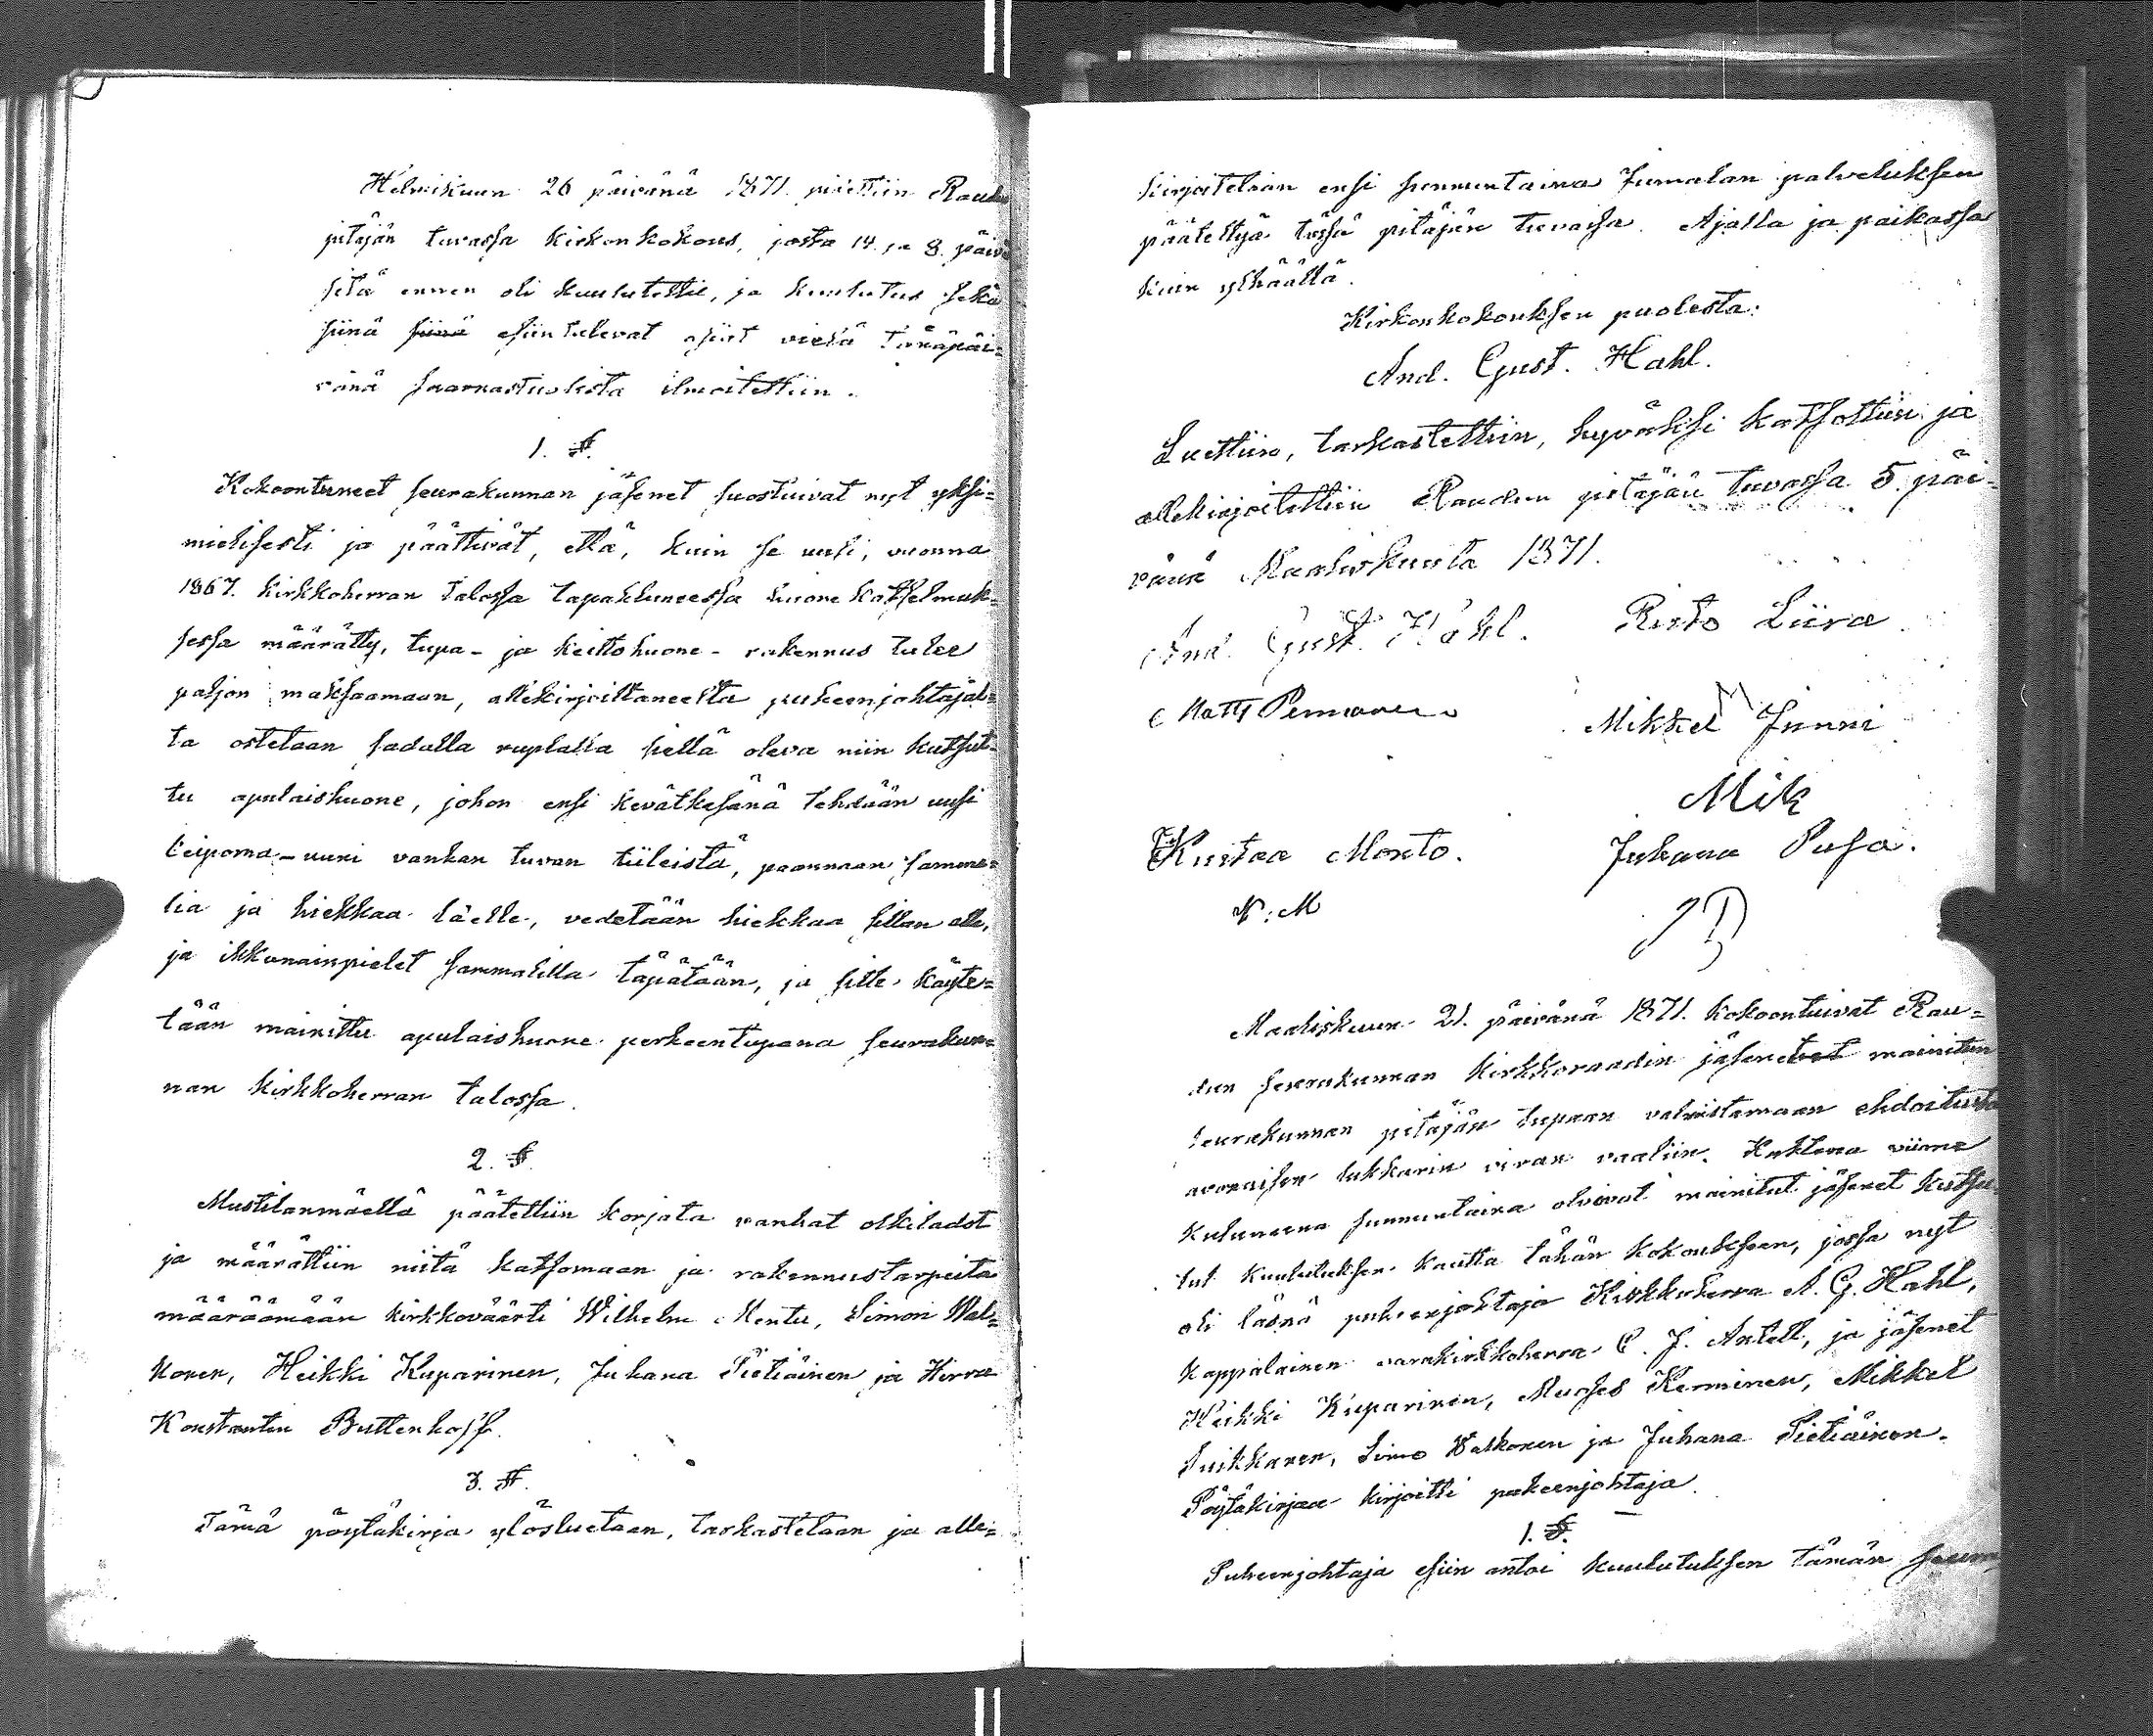 Helmikuun 26 päivänä 1871 pidettiin Raudun
pitäjän tuvassa kirkonkokous, josta 14. ja 8. päivä
sitä ennen oli kuulutettu, ja kuulutus sekä
siinä siinä esiintulevat asiat vielä tänäpäi=
vänä saarnastuolista ilmoitettiin.
1. §.
Kokoontuneet seurakunnan jäsenet suostuivat nyt yksi=
mielisesti ja päättivät, että, kuin se uusi, vuonna
1867. kirkkoherran talossa tapahtuneessa huone katselmuk=
sessa määrätty, tupa- ja keittohuone-rakennus tulee
paljon maksaamaan, allekirjoittaneelta puheenjohtajal=
ta ostetaan sadalla ruplalla siellä oleva niin kutsut=
tu apulaishuone, johon ensi kevätkesänä tehdään uusi
leipoma-uuni vanhan tuvan tiileistä, pannaan samma=
lia ja hiekkaa laelle, vedetään hiekkaa sillan alle,
ja ikkunainpielet sammalilla täpätään, ja sille käyte=
tään mainittu apulaishuone perheentupana seurakun=
nan kirkkoherran talossa.
2. §
Mustilanmäellä päätettiin korjata vanhat olkiladot
ja määrättiin niitä katsomaan ja rakennustarpeita
määräämään kirkkoväärti Wilhelm Mentu, Simon Wal=
konen, Heikki Kuparinen, Juhana Pietiäinen ja Herra
Konstantin Buttenhoff.
3. §.
Tämä pöytäkirja ylösluetaan, tarkastetaan ja alle=
kirjoitetaan ensi sunnuntaina Jumalan palveluksen
päätettyä tässä pitäjän tuvassa. Ajalla ja paikassa
kuin ylhäällä.
Kirkonkokouksen puolesta:
And. Gust. Hahl.
Luettiin, tarkastettiin, hyväksi katsottiin ja
allekirjoitettiin Raudun pitäjän tuvassa 5. päi=
vänä Maaliskuuta 1871.
And. Gust. Hahl. Risto Liira
Matti Pennanen
Mikkel Junni
Mik
Kustaa Monto. Juhana Pusa.
K: M
JP
Maaliskuun 21. päivänä 1871. kokoontuivat Rau=
dun seurakunnan kirkkoraadin jäsenetvat mainitun
seurakunnan pitäjän tupaan valmistamaan ehdoitusta
avonaisen lukkarin viran vaaliin. Kahtena viime
kuluneena sunnuntaina olivat mainitut jäsenet kutsu=
tut kuulutuksen kautta tähän kokoukseen, jossa nyt
oli läsnä puheenjohtaja Kirkkoherra A. G. Hahl,
Kappalainen varakirkkoherra C. J. Antell, ja jäsenet
Heikki Kuparinen, Muoses Kerminen, Mikkel
Suikkanen, Simo Walkonen ja Juhana Pietiäinen.
Pöytäkirjaa kirjoitti puheenjohtaja.
1. §.
Puheenjohtaja esiin antoi kuulutuksen tämän